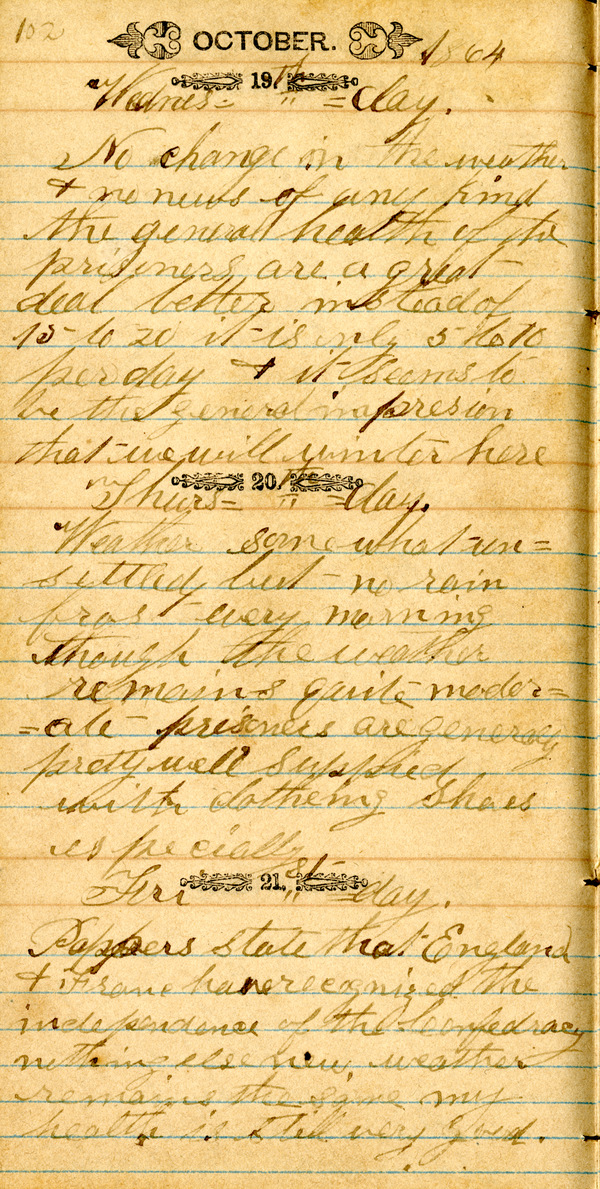 102 OCTOBER. 1864
Wednes= 19th =day.
No change in the weather
& no news of any kind
the general health of the
prisoners are a great
deal better instead of
15 to 20 it is only 5 to 10
per day & it seems to
be the general impresion
that we will winter here
Thurs= 20.th =day.
Weather somewhat un=
settled but no rain
frost every morning
though the weather
remains quite moder=
=ate prisoners are generaly
pretty well supplied
with clotheing shoes
especially
Fri 21.st =day.
Pappers state that England
& France have recognized the
independence of the Confedracy
nothing else new weather
remains the same my
health is still very good.